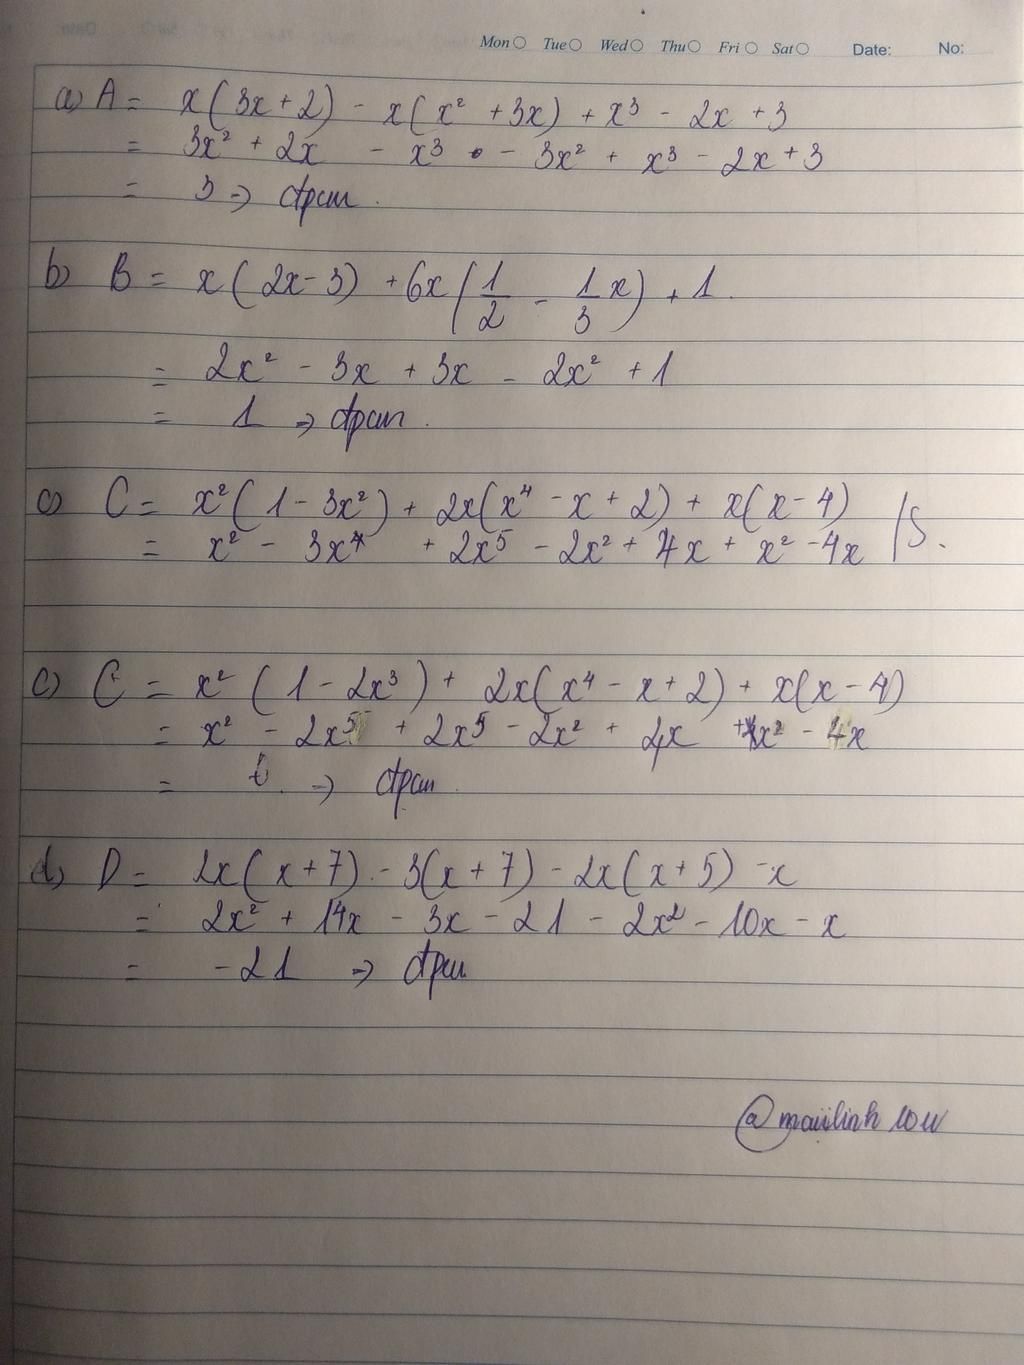 Mon Tue Wed Thu Fri Sat Date: No:
a) A = x(3x+2) - x(x² + 3x) + x³ - 2x + 3
= 3x² + 2x - x³ - 3x² + x³ - 2x + 3
= 3 => đpcm.
b) B = x(2x-3) + 6x(1/2 - 1/3x) + 1.
= 2x² - 3x + 3x - 2x² + 1
= 1 => đpcm.
c) C = x²(1 - 3x²) + 2x(x⁴ - x + 2) + x(x-4)
= x² - 3x⁴ + 2x⁵ - 2x² + 4x + x² - 4x /S.
c) C = x² (1 - 2x³) + 2x(x⁴ - x + 2) + x(x - 4)
= x² - 2x⁵ + 2x⁵ - 2x² + 4x + x² - 4x
= => đpcm.
d) D = 2x(x+7) - 3(x+7) - 2x(x+5) - x
= 2x² + 14x - 3x - 21 - 2x² - 10x - x
= -21 => đpcm